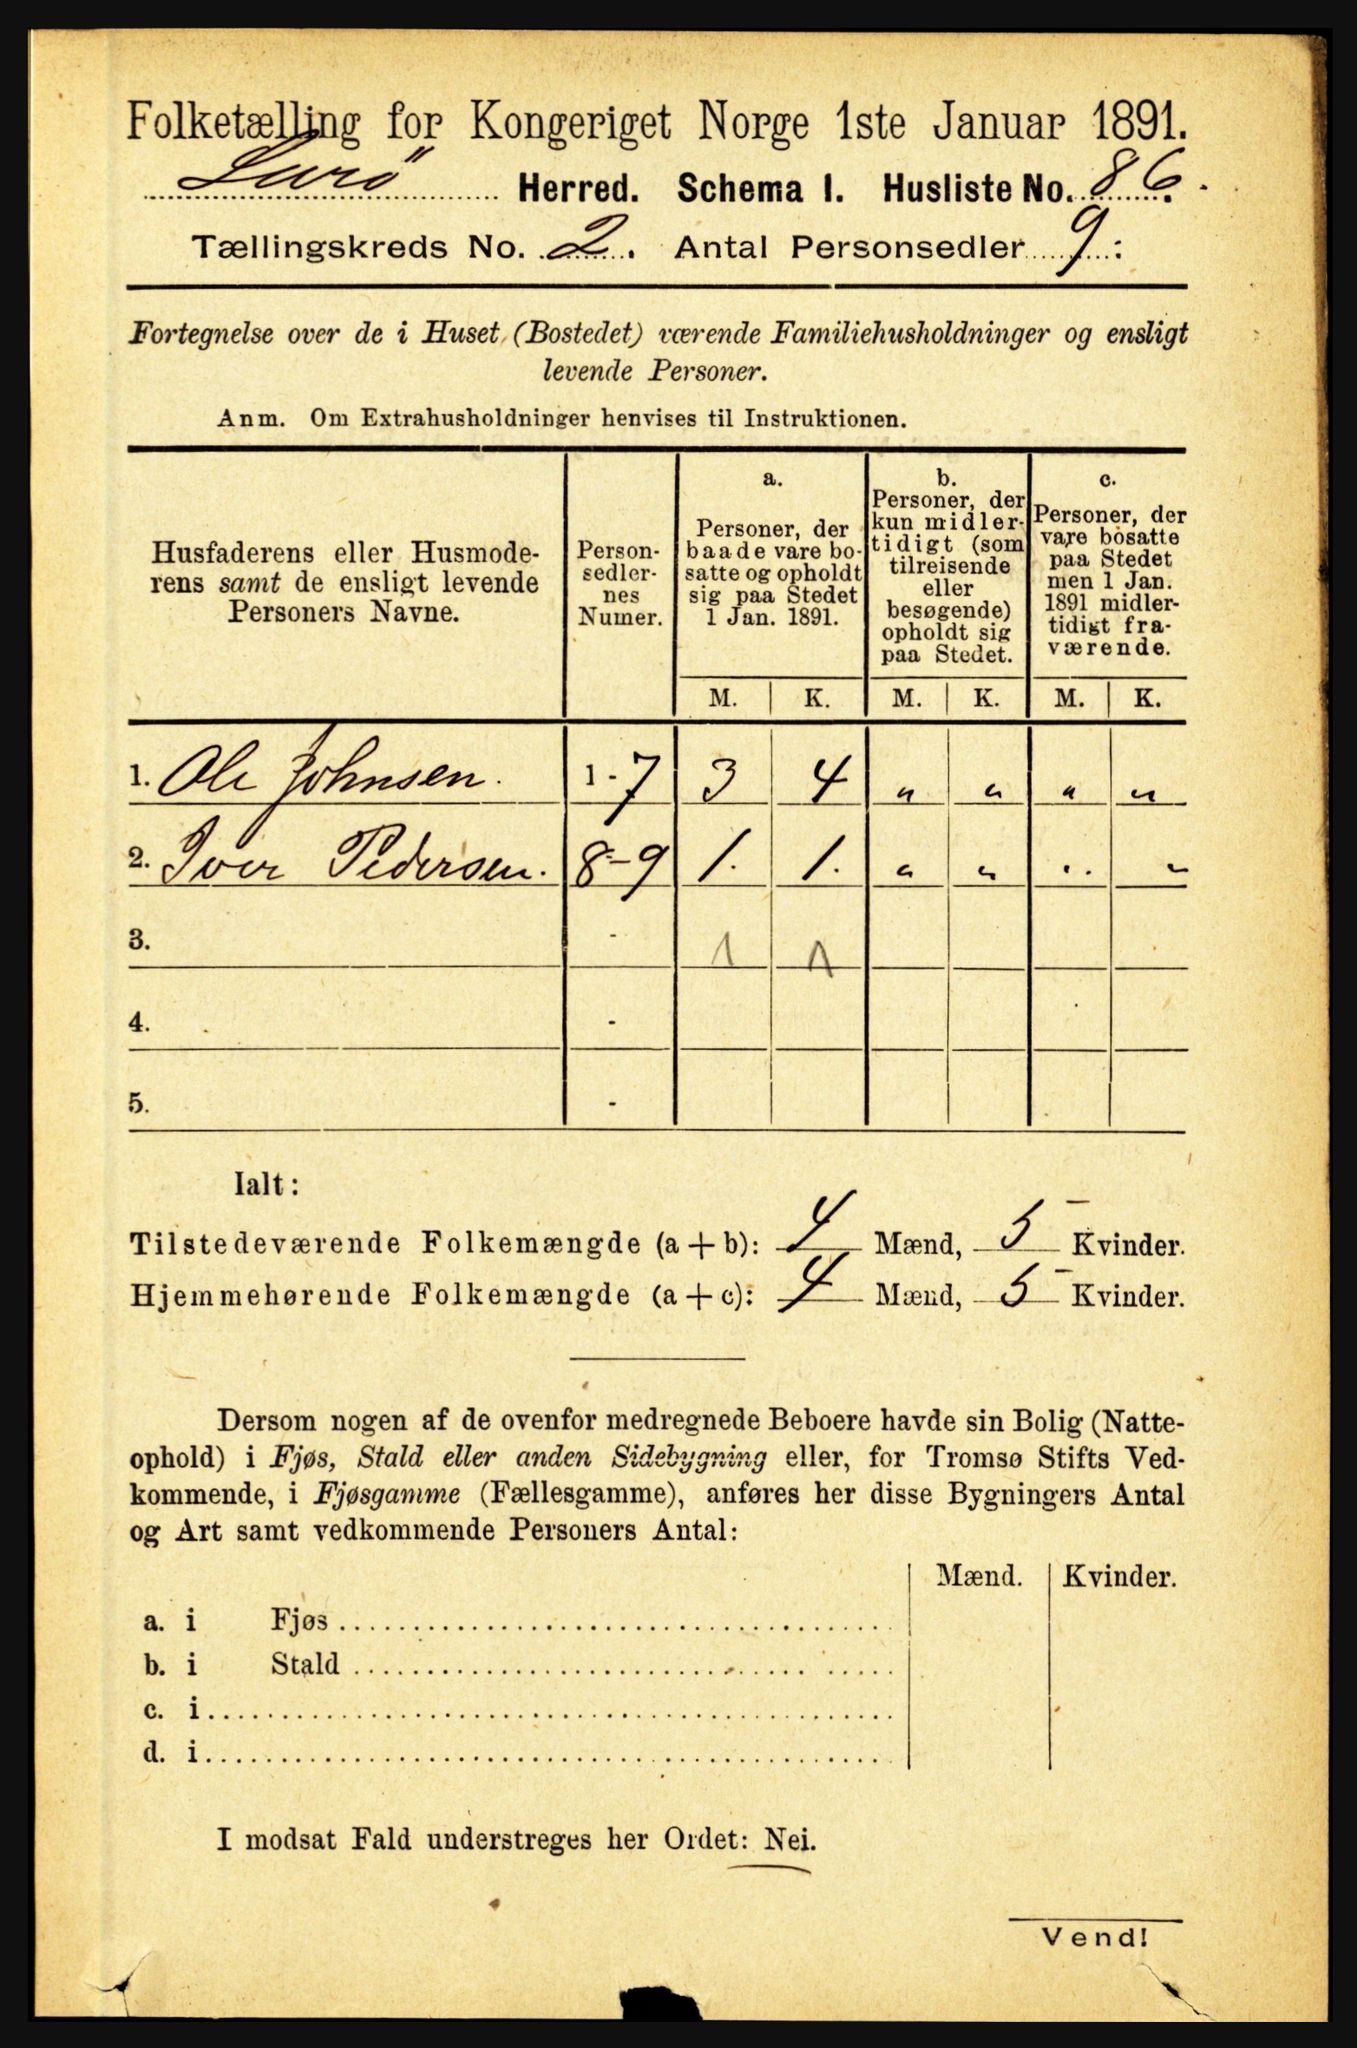 Folketælling for Kongeriget Norge 1ste Januar 1891.
Lurö Herred. Schema I. Husliste No. 86.
Tællingskreds No. 2. Antal Personsedler 9:
Fortegnelse over de i Huset (Bostedet) værende Familiehusholdninger og ensligt
levende Personer.
Anm. Om Extrahusholdninger henvises til Instruktionen.
Husfaderens eller Husmode-
rens samt de ensligt levende
Personers Navne.
Person-
sedler-
nes
Numer.
a.
Personer, der
baade vare bo-
satte og opholdt
sig paa Stedet
1 Jan. 1891.
b.
Personer, der
kun midler-
tidigt (som
tilreisende
eller
besøgende)
opholdt sig
paa Stedet.
c.
Personer, der
vare bosatte
paa Stedet
men 1 Jan.
1891 midler-
tidigt fra-
værende.
M. K. M. K. M. K.
1. Ole Johnsen. 1-7 3 4 „ „ „ „
2. Iver Pedersen. 8-9 1. 1. „ „ .. „
3. - 1 1
4. -
5. -
Ialt:
Tilstedeværende Folkemængde (a+b): 4 Mænd, 5 Kvinder.
Hjemmehørende Folkemængde (a+c): 4 Mænd, 5 Kvinder.
Dersom nogen af de ovenfor medregnede Beboere havde sin Bolig (Natte-
ophold) i Fjøs, Stald eller anden Sidebygning eller, for Tromsø Stifts Ved-
kommende, i Fjøsgamme (Fællesgamme), anføres her disse Bygningers Antal
og Art samt vedkommende Personers Antal:
Mænd. Kvinder.
a. i Fjøs
b. i Stald
c. i
d. i
I modsat Fald understreges her Ordet: Nei.
Vend!